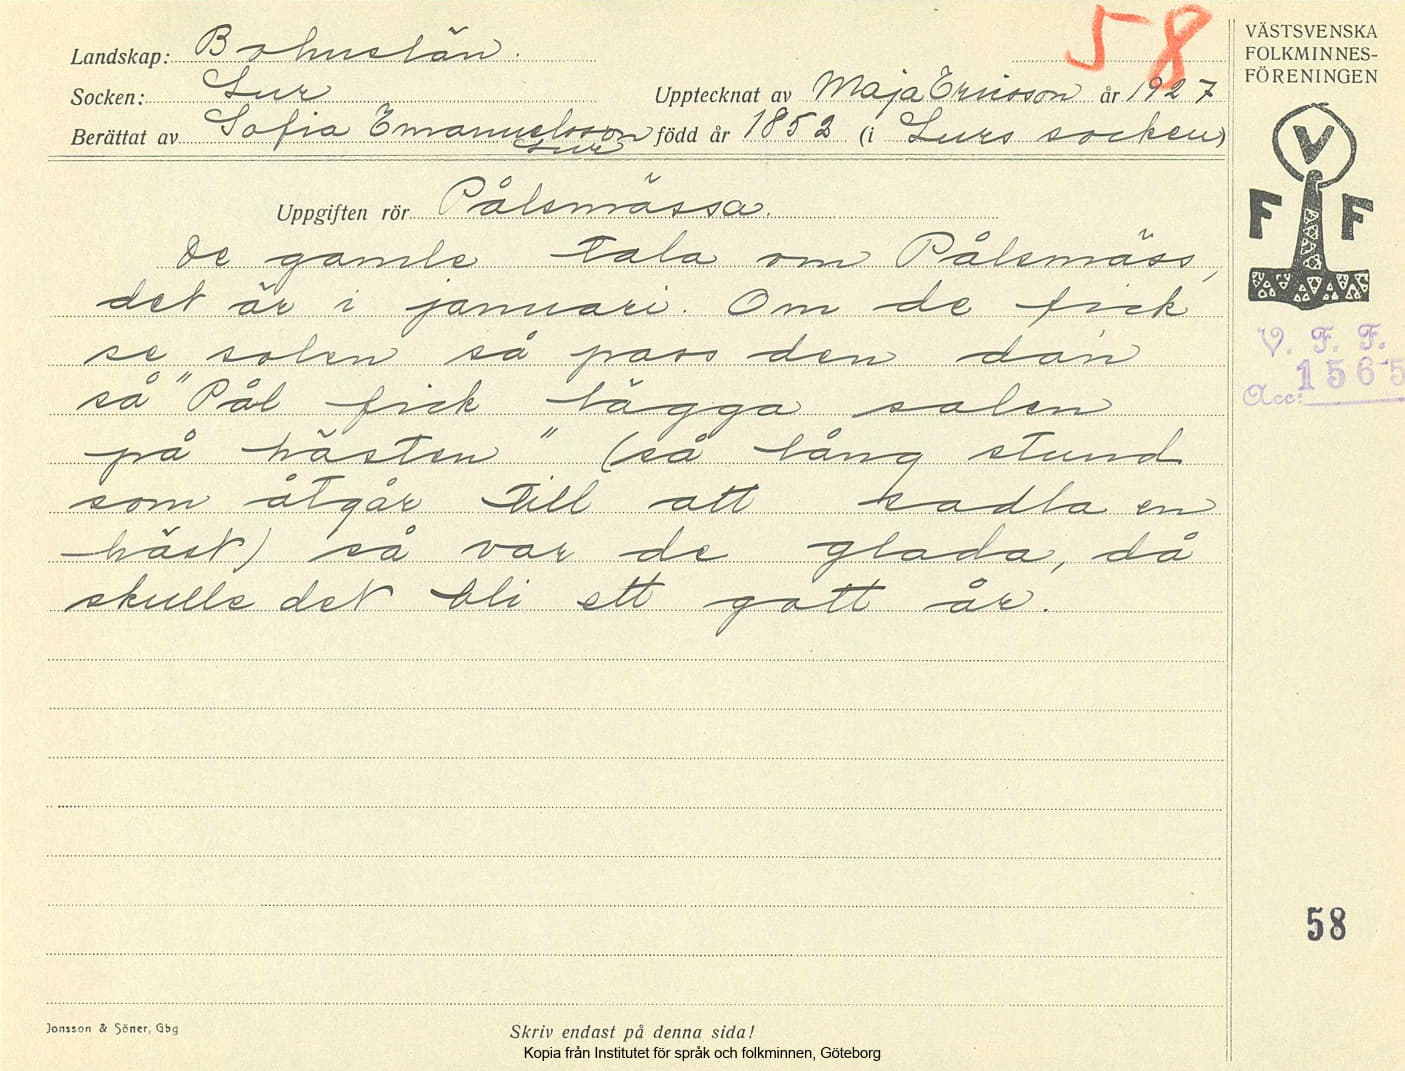 58
VÄSTSVENSKA
FOLKMINNES-
FÖRENINGEN
Landskap: Bohuslän.
Socken: Lur
Upptecknat av Maja Ericsson år 1927
Berättat av Sofia Emanuelsson född år 1852 (i Lurs socken)
Lur
Uppgiften rör Pålsmässa.
De gamle tala om Pålsmäss,
det är i januari. Om de fick
se solen så pass den dan
så "Pål fick lägga salen
på hästen" (så lång stund
som åtgår till att sadla en
häst) så var de glada, då
skulle det bli ett gott år.
V
F F
V. F. F.
1565
Acc:
58
Jonsson & Söner, Gbg
Skriv endast på denna sida!
Kopia från Institutet för språk och folkminnen, Göteborg